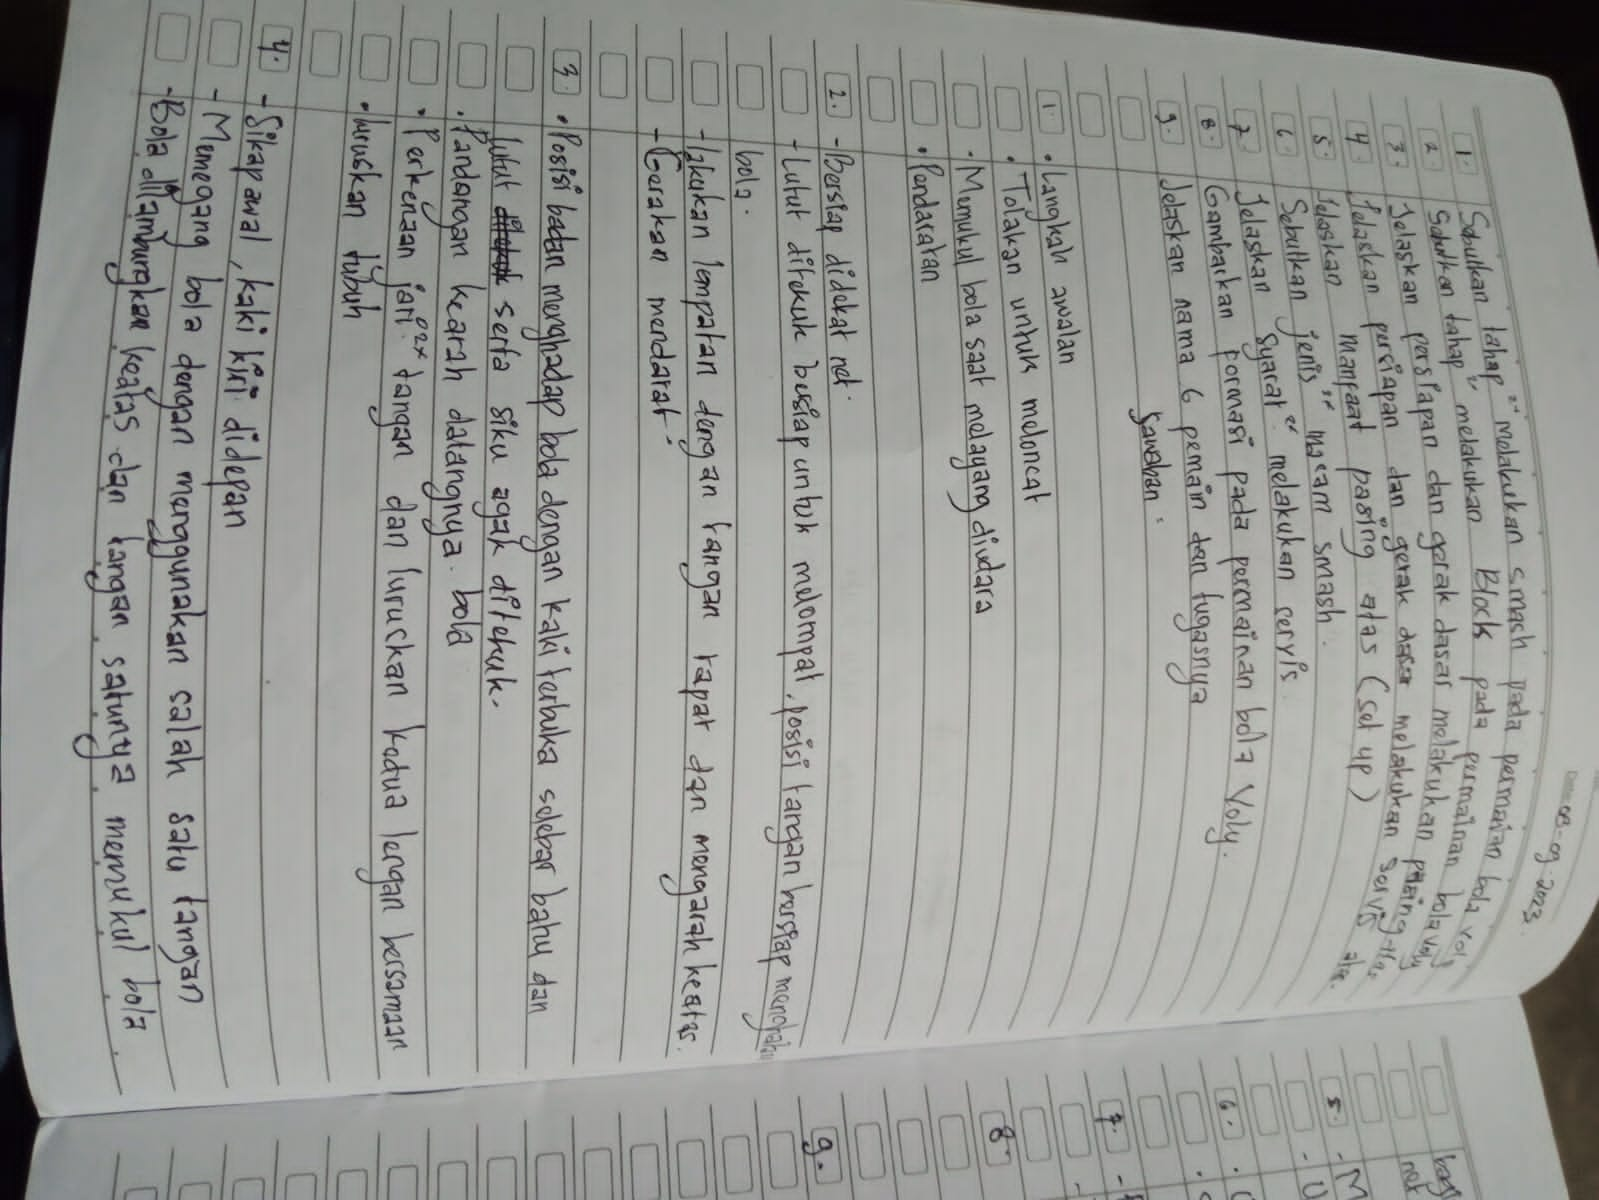 Date: 08-09-2023.
1. Sebutkan tahap" melakukan smash pada permainan bola voly
2. Sebutkan tahap" melakukan Block pada permainan bola voly
3. Jelaskan persiapan dan gerak dasar melakukan pasing atas
4. Jelaskan persiapan dan gerak melakukan servis atas.
5. Jelaskan manfaat pasing atas (set up)
6. Sebutkan jenis" macam smash.
7. Jelaskan Syarat" melakukan servis.
8. Gambarkan formasi pada permainan bola Voly.
9. Jelaskan nama 6 pemain dan tugasnya
Jawaban:
1. • Langkah awalan
• Tolakan untuk meloncat
• Memukul bola saat melayang diudara
• Pendaratan
2. - Bersiap didekat net.
- Lutut ditekuk bersiap untuk melompat, posisi tangan bersiap
bola.
- lakukan lompatan dengan tangan rapat dan mengarah keatas.
- Gerakan mendarat.
3. • Posisi badan menghadap bola dengan kaki terbuka selebar bahu dan
lutut serta siku agak ditekuk.
• Pandangan kearah datangnya bola
• Perkenaan jari" tangan dan luruskan kedua lengan bersamaan
• luruskan tubuh
4. - Sikap awal, kaki kiri didepan
- Memegang bola dengan menggunakan salah satu tangan
- Bola dilambungkan keatas dan tangan satunya memukul bola
bag
net
5. - M
- U
6.
7.
8.
9.